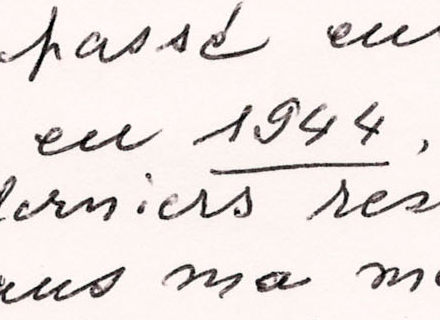 passé en
en 1944,
derniers res
ans ma m